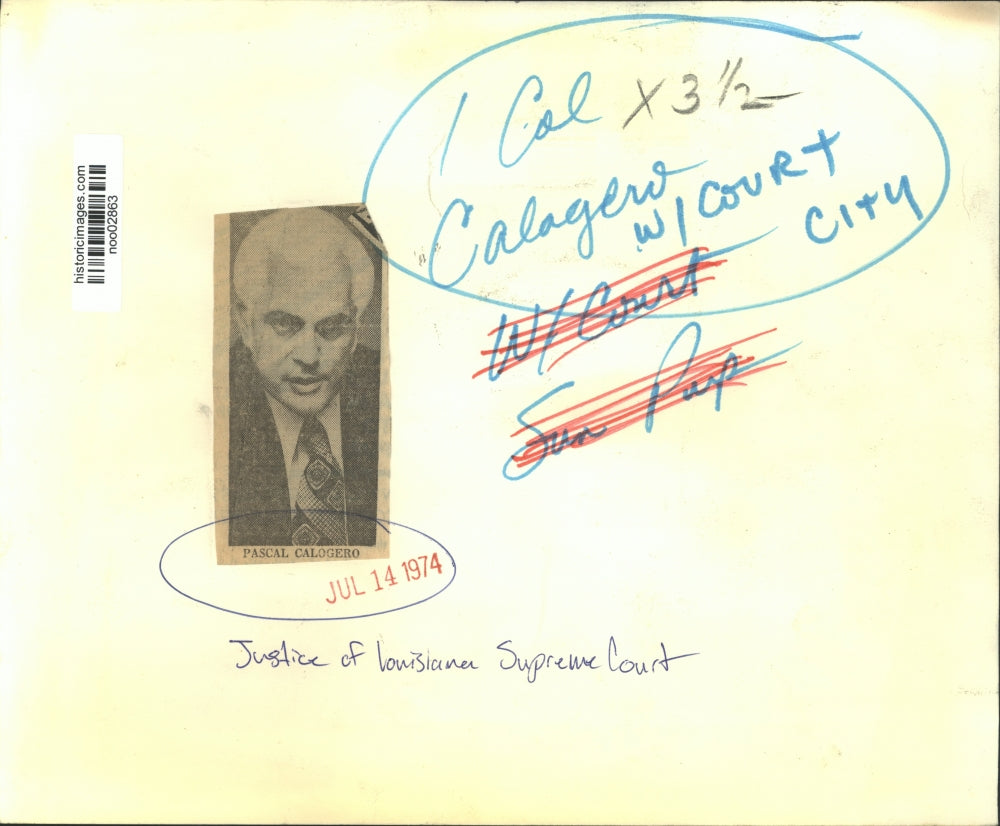 1 Col x 3 1/2
Calogero
W/ COURT
CITY
W/ Court
Sun Pup
historicimages.com
noo02863
PASCAL CALOGERO
JUL 14 1974
Justice of Louisiana Supreme Court